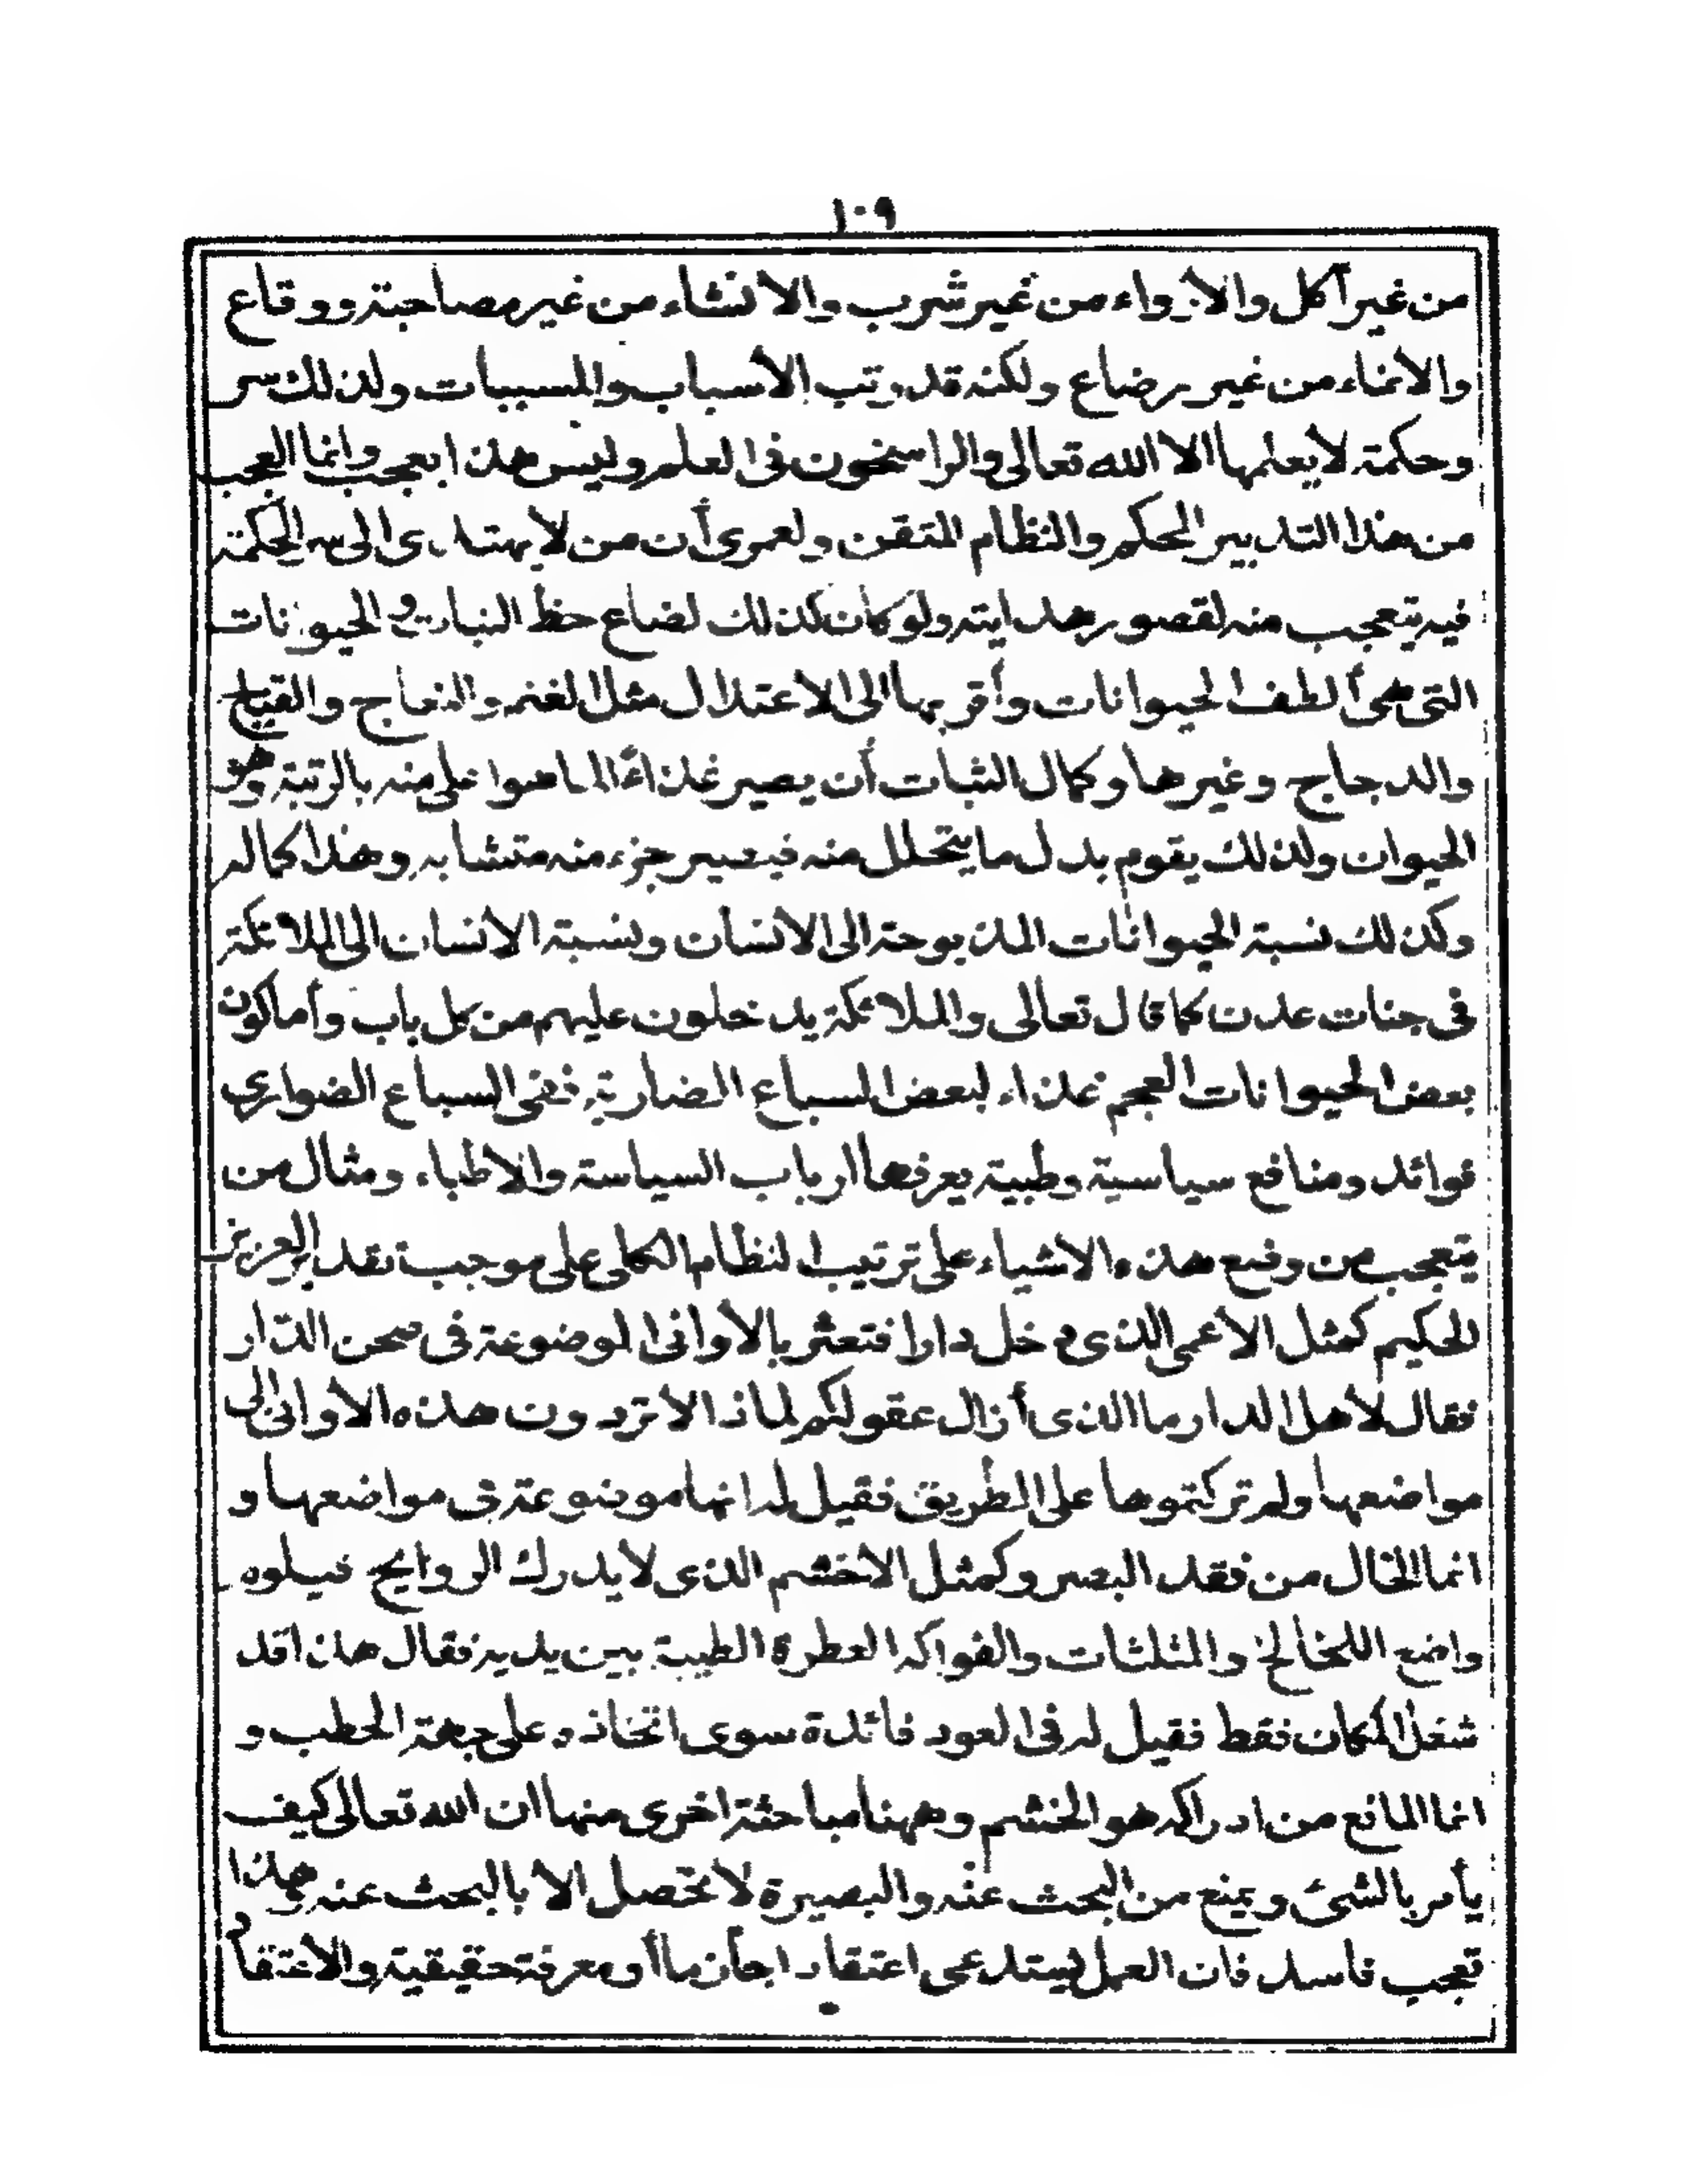 ١٠٩
من غير أكل والارواء من غير شرب والانشاء من غير مصاحبة ووقاع
والانماء من غير رضاع ولكنه قد رتب الأسباب والمسببات ولذلك سر
وحكمة لا يعلمها الا الله تعالى والراسخون في العلم وليس هذا بعجب وانما العجب
من هذا التدبير المحكم والنظام المتقن ولعمرى أن من لا يهتدى الى سر الحكمة
فيه يتعجب منه لقصور هدايته ولو كان كذلك لضاع حظ النبات والحيوانات
التى هى ألطف الحيوانات وأقربها الى الاعتدال مثل الغنم والنعاج والقباج
والدجاج وغيرها وكمال النبات أن يصير غذاءً لما هو اعلى منه بالرتبة وهو
الحيوان ولذلك يقوم بدل ما يتحلل منه فيصير جزء منه متشابه وهذا كماله
وكذلك نسبة الحيوانات المذبوحة الى الانسان ونسبة الانسان الى الملائكة
في جنات عدن كما قال تعالى والملائكة يدخلون عليهم من كل باب وأما كون
بعض الحيوانات العجم غذاء لبعض السباع الضارية ففى السباع الضوارى
فوائد ومنافع سياسية وطبية يعرفها ارباب السياسة والاطباء ومثال من
يتعجب من وضع هذه الاشياء على ترتيب النظام الكلى على موجب تقدير العزيز
الحكيم كمثل الأعمى الذى دخل دارا فتعثر بالأوانى الموضوعة في صحن الدار
فقال لأهل الدار ما الذى أزال عقولكم لماذا لا تردون هذه الأوانى الى
مواضعها ولم تركتموها على الطريق فقيل له انها موضوعة في مواضعها و
انما الخال من فقد البصر وكمثل الأخشم الذى لا يدرك الروايح فيلوه
واضع اللخالخ والمثلثات والفواكه العطرة الطيبة بين يديه فقال هذا قد
شغل المكان فقط فقيل له فى العود فائدة سوى اتخاذه على جهة الحطب و
انما المانع من ادراكه هو الخشم وههنا مباحثة اخرى منها ان الله تعالى كيف
يأمر بالشئ ويمنع من البحث عنه والبصيرة لا تحصل الا بالبحث عنه وهذا
تعجب فاسد فان العمل يستدعى اعتقادا جازما أو معرفة حقيقية والاعتقاد